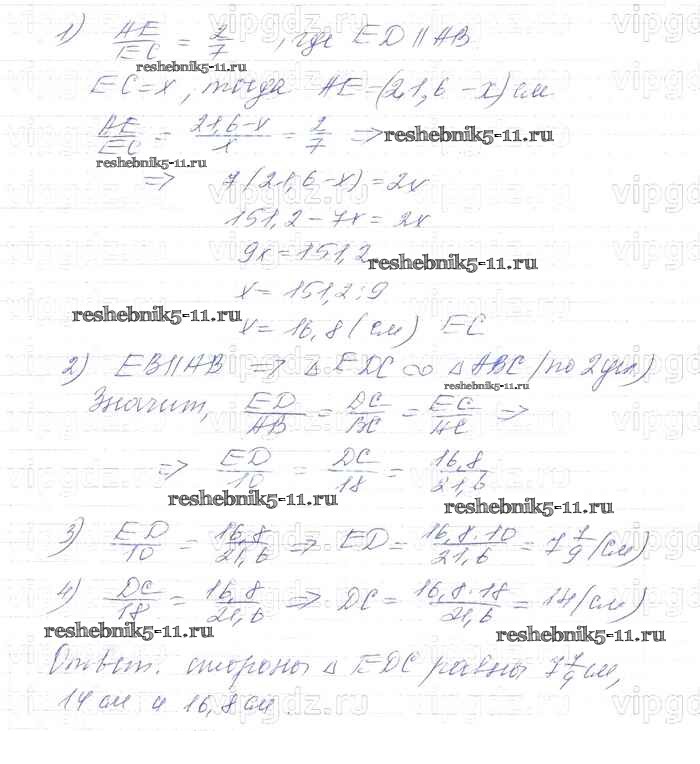 1) AE/EC = 2/7, где ED || AB
reshebnik5-11.ru
EC = x, тогда AE = (21,6 - x) см
AE/EC = (21,6 - x)/x = 2/7 =>
reshebnik5-11.ru
reshebnik5-11.ru
=> 7(21,6 - x) = 2x
151,2 - 7x = 2x
9x = 151,2
reshebnik5-11.ru
x = 151,2 : 9
reshebnik5-11.ru
x = 16,8 (см) EC
2) EB || AB => △ EDC ∞ △ ABC (по 2 угл)
reshebnik5-11.ru
Значит, ED/AB = DC/BC = EC/AC =>
=> ED/10 = DC/18 = 16,8/21,6
reshebnik5-11.ru
reshebnik5-11.ru
3) ED/10 = 16,8/21,6 => ED = 16,8 · 10/21,6 = 7 7/9 (см)
4) DC/18 = 16,8/21,6 => DC = 16,8 · 18/21,6 = 14 (см)
reshebnik5-11.ru
reshebnik5-11.ru
Ответ. стороны △ EDC равны 7 7/9 см,
14 см и 16,8 см.
vipgdz.ru